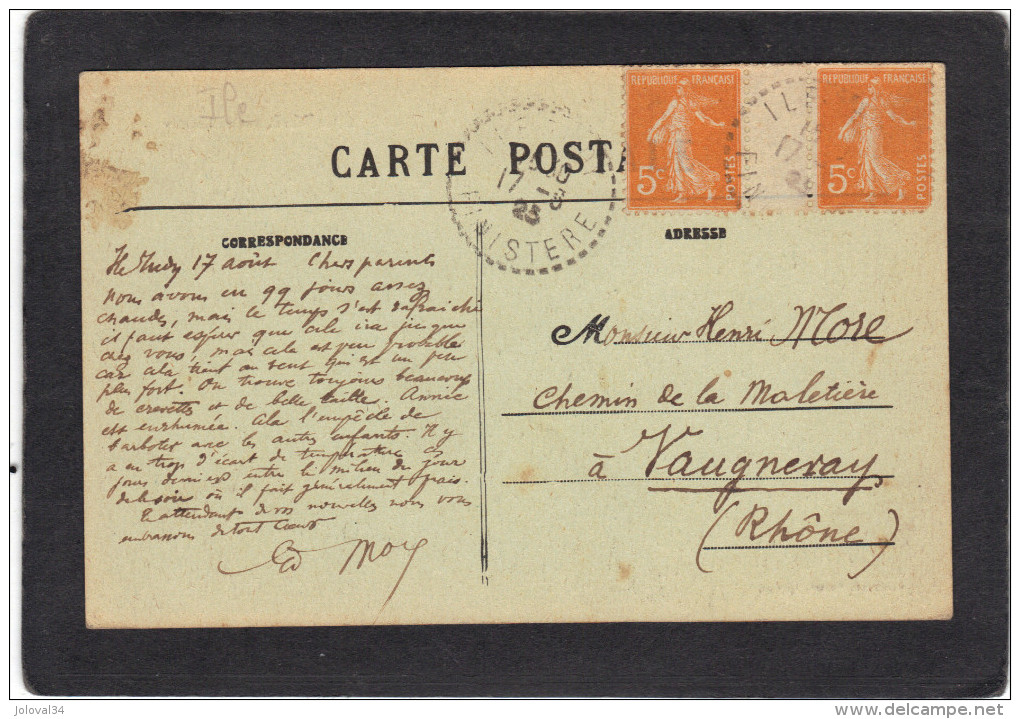 Ile
CARTE POSTA
REPUBLIQUE FRANÇAISE
5c
POSTES
REPUBLIQUE FRANÇAISE
5c
POSTES
17 - 8
23
FINISTERE
IL
17
FIN
CORRESPONDANCE
ADRESSE
Ile Tudy 17 août Chers parents
Nous avons eu 99 jours assez
chauds, mais le temps s'est rafraichi
il faut espérer que cela ira jusque
chez vous, mais cela est peu probable
car cela tient au vent qui est un peu
plus fort. On trouve toujours beaucoup
de crevettes et de belle taille. Année
est enrhumée. Cela l'empêche de
barboter avec les autres enfants. Il y
a eu trop d'écart de température ces
jours derniers entre le milieu du jour
et le soir où il fait généralement frais.
En attendant de vos nouvelles nous vous
embrassons de tout cœur
Ed More
Monsieur Henri More
Chemin de la Maletière
à Vaugneray
(Rhône)
joloval34
www.delcampe.net